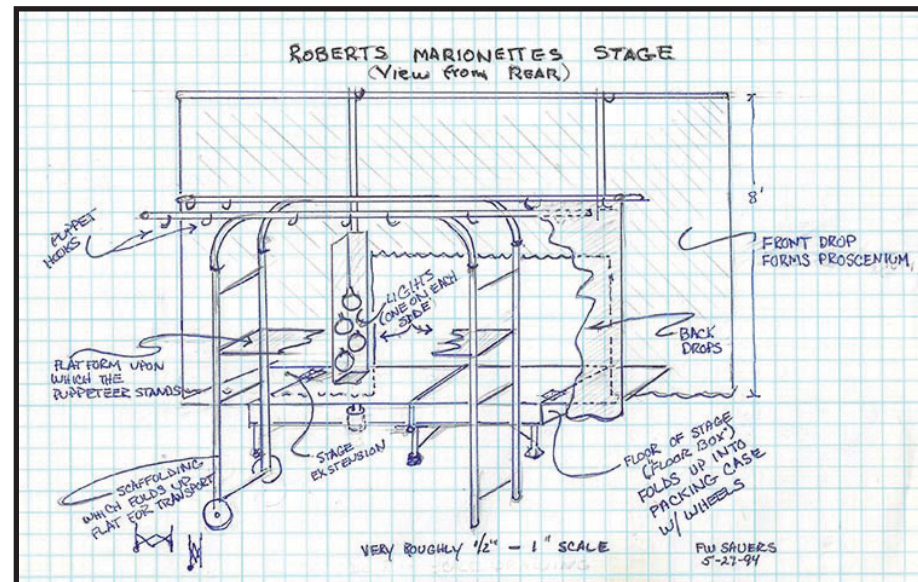 ROBERTS MARIONETTES STAGE
(View from REAR)
8'
PUPPET
HOOKS
LIGHTS
(ONE ON EACH
SIDE)
FRONT DROP
FORMS PROSCENIUM
BACK
DROPS
PLATFORM UPON
WHICH THE
PUPPETEER STANDS
STAGE
EXSTENSION
FLOOR OF STAGE
("FLOOR BOX")
FOLDS UP INTO
PACKING CASE
W/ WHEELS
SCAFFOLDING
WHICH FOLDS UP
FLAT FOR TRANSPORT
VERY ROUGHLY 1/2" - 1" SCALE
FW SAUERS
5-27-94